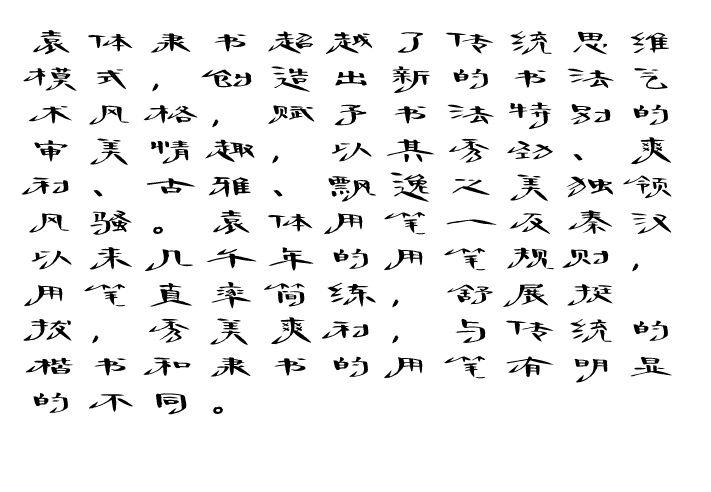 袁体隶书超越了传统思维
模式，创造出新的书法艺
术风格，赋予书法特别的
审美情趣，以其秀劲、爽
利、古雅、飘逸之美独领
风骚。袁体用笔一反秦汉
以来几千年的用笔规则，
用笔直率简练，舒展挺
拔，秀美爽利，与传统的
楷书和隶书的用笔有明显
的不同。